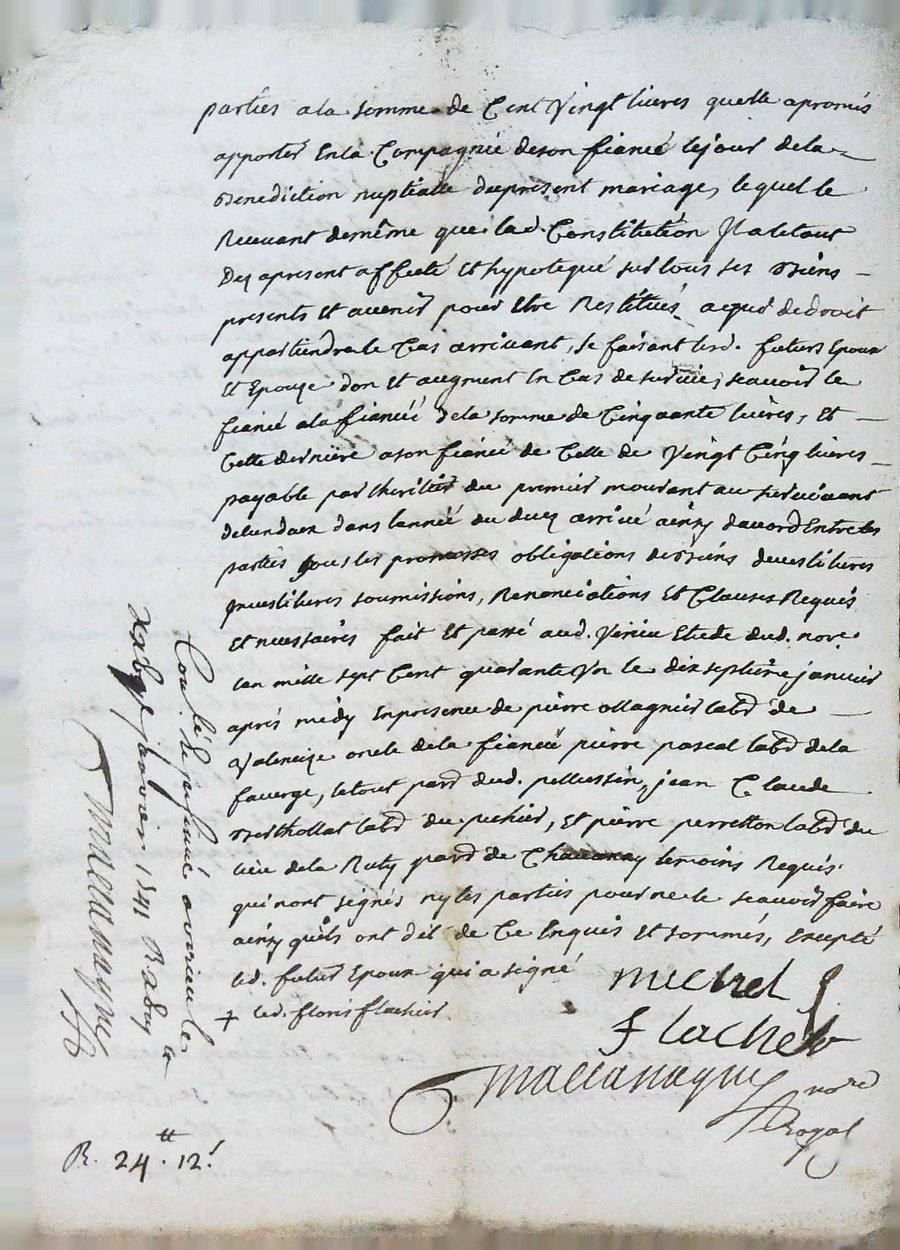 parties a la somme de Cent Vingt livres quelle a promis
apporter En la Compagnie de son fiancé le jour de la
Benediction nuptialle du present mariage, lequel le
Recevant de même que lad. Constitution Il a le tout
Des apresent affecté Et hypotequé sur tous ses Biens
presents Et avenir pour Etre Restitués a qui de droit
appartiendra le Cas arrivant, se faisant lesd. futurs Epoux
Et Epouze don Et augment En Cas de survie, scavoir le
fiancé a la fiancée de la somme de Cinquante livres, Et
Cette derniere a son fiancé de Celle de Vingt Cinq livres
payable par lheritier du premier mourant au survivant
deux dans lannée du deces arrivé ainsy daccord Entre les
parties sous les promesses obligations des Biens devestitures
Investitures soumissions, Renonciations Et Clauses Requis
Et necessaires fait Et passé aud. Virieu Etude dud. nore.
Lan mille sept Cent quarante Un le dix septième janvier
après midy En presence de pierre ollagnier labr. de
Valencize oncle de la fiancée pierre pascal labr. de la
faverge, le tout parr. dud. pellussin, jean Claude
Berthollat labr. du pichier, Et pierre perretton labr. du
lieu de la Ruty parr. de Chavanay temoins Requis
qui nont signés ny les parties pour ne le scavoir faire
ainsy quils ont dit de Ce Enquis Et sommés, Excepté
led. futur Epoux qui a signé
+ led. floris flachier
michel
flacher
Maccanagny nore
Royal
Conlé & scellé a virieu le
janvier 1741 R
Maccanagny
R. 24tt. 12s